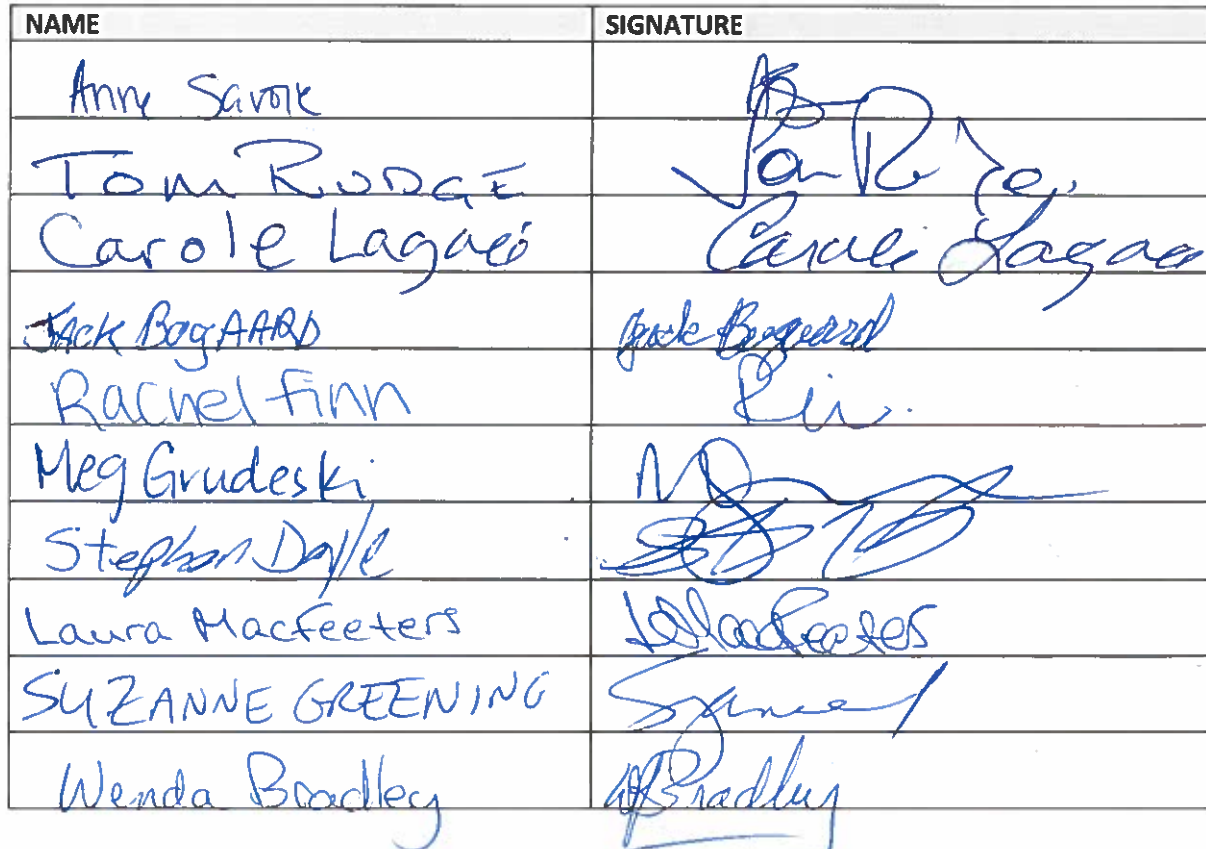 NAME SIGNATURE
Anne Savoie
Tom RUDGE
Carole Lagacé Carole Lagace
JACK BogAARD Jack Bogaard
Rachel Finn
Meg Grudeski
Stephen Doyle
Laura MacFeeters LMacFeeters
SUZANNE GREENING
Wenda Bradley WBradley